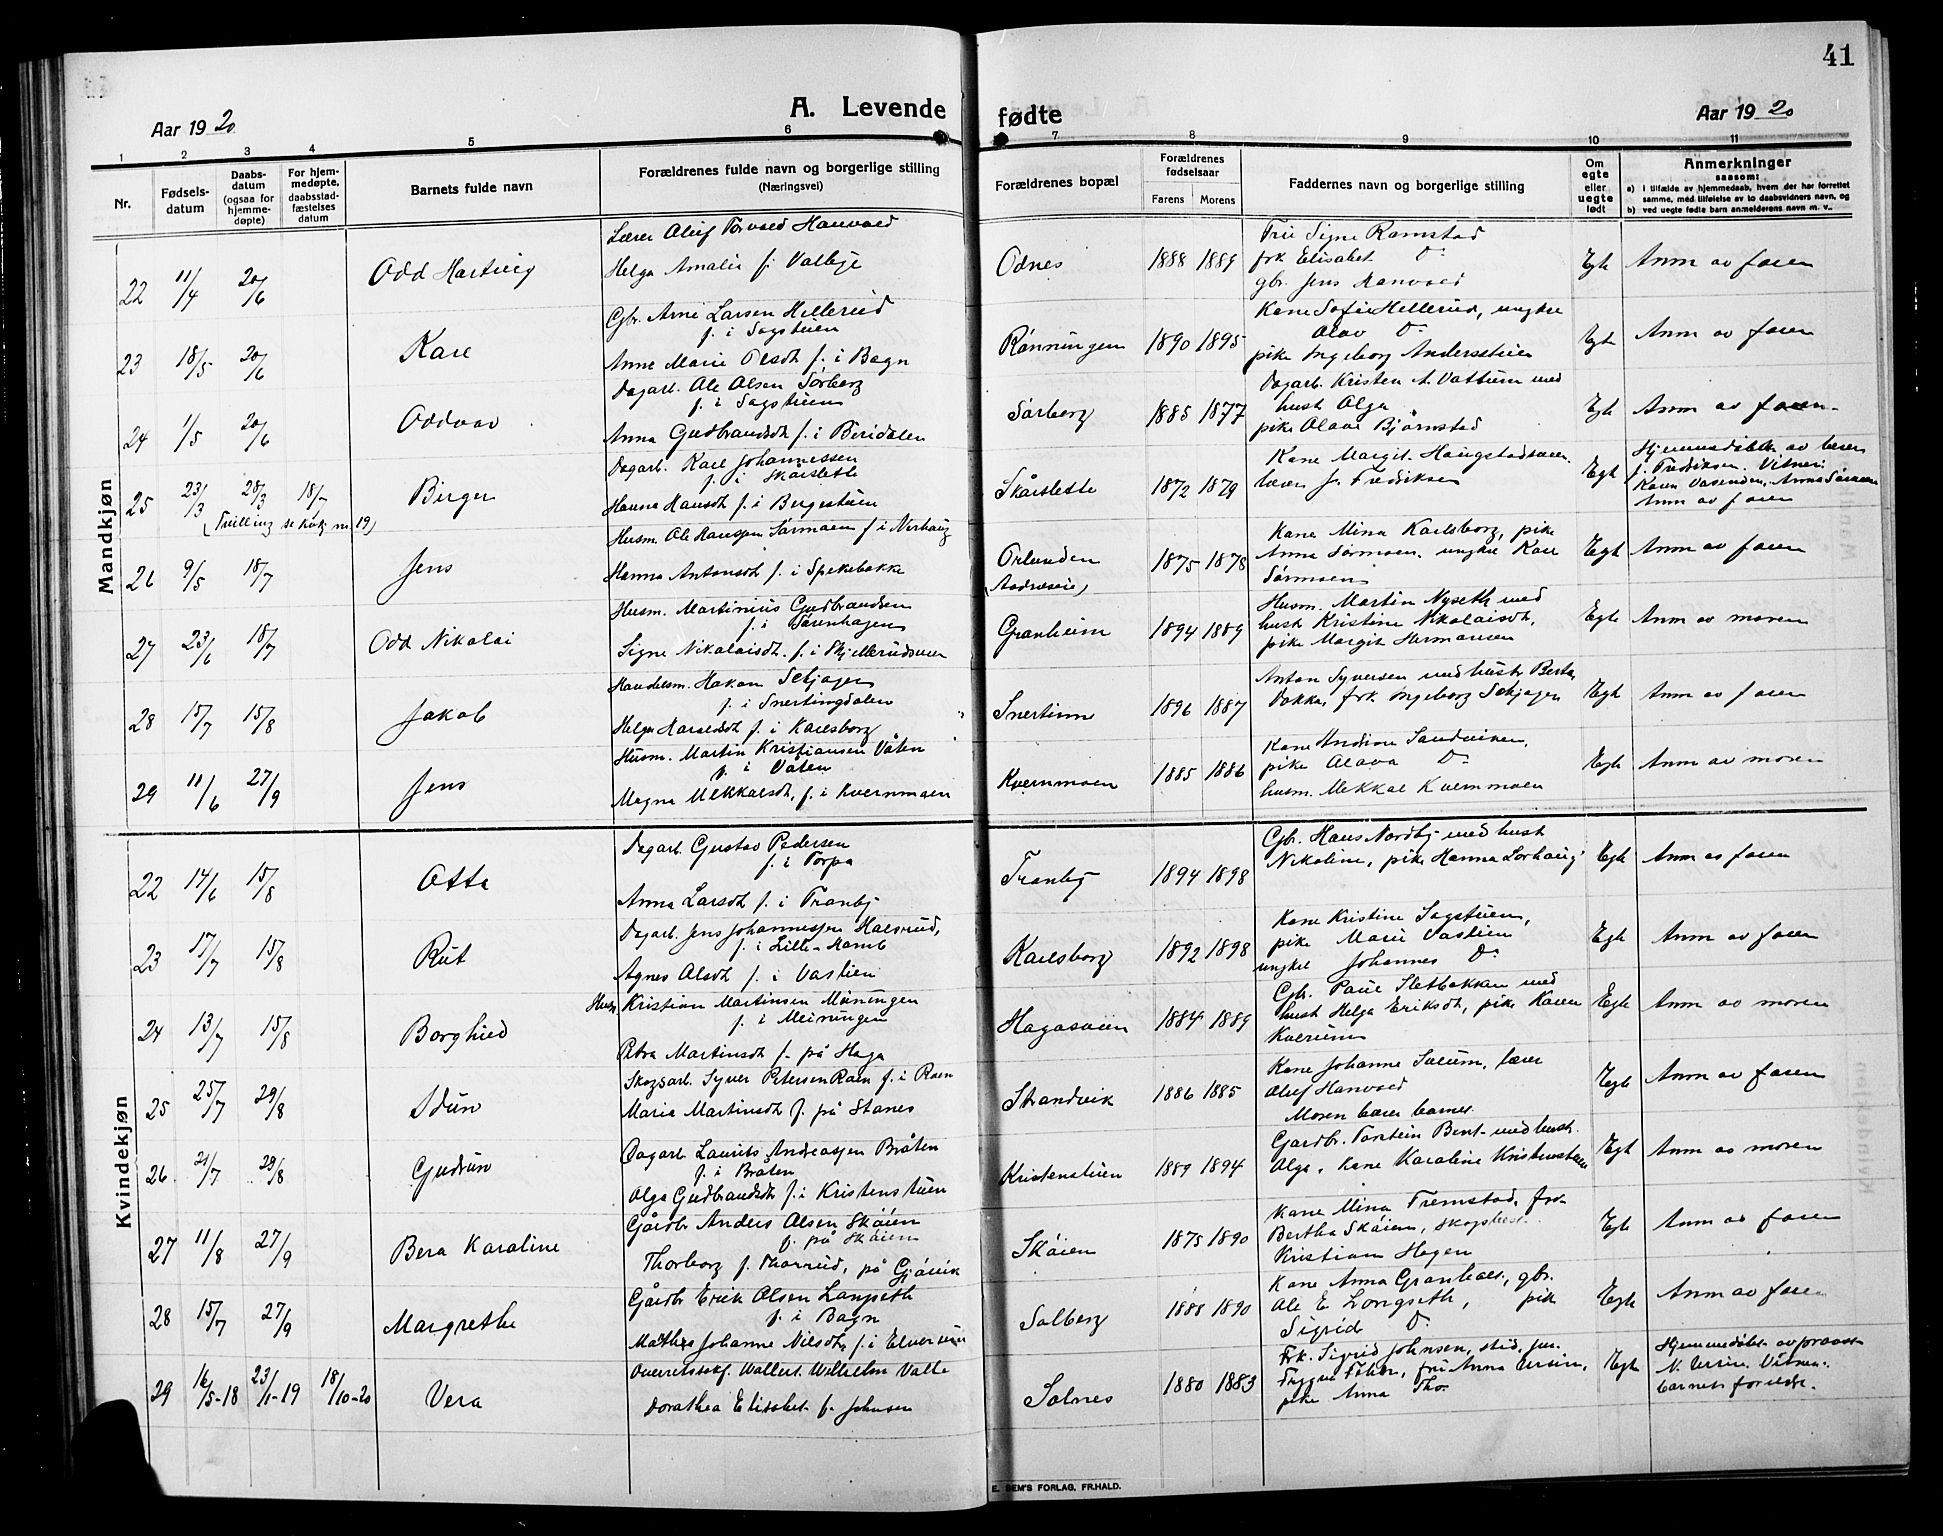 41
A. Levende fødte
Aar 1920
Aar 1920
1 2 3 4 5 6 7 8 9 10 11
Nr.
Fødsels-
datum
Daabs-
datum
(ogsaa for
hjemme-
døpte)
For hjem-
medøpte,
daabsstad-
fæstelses
datum
Barnets fulde navn
Forældrenes fulde navn og borgerlige stilling
(Næringsvei)
Forældrenes bopæl
Forældrenes
fødselsaar
Farens Morens
Faddernes navn og borgerlige stilling
Om
egte
eller
uegte
født
Anmerkninger
saasom:
a) i tilfælde av hjemmedaab, hvem der har forrettet
samme, med tilføielse av to daabsvidners navn, og
b) ved uegte fødte barn anmelderens navn m. v..
Mandkjøn
22 11/4 20/6 Odd Hartvig
Lærer Oluf Torvald Hanvold
Helga Amalie f.
Odnes 1888 1889
Fru Signe Ramstad
frk Elisabet Do
gbr. Jens Hanvold
Egte Anm av faren
23 18/5 20/6 Kare
Gbr. Arne Larsen Hellerud
f. i Sagstuen
Anne Marie Olsdt f. i Bagn
Rønningen 1890 1895
Kone Sofie Hellerud, ungkar
Olav Do
pike Ingeborg Anderstuen
Egte Anm av faren
24 1/5 20/6 Oddvar
Dagarb. Ole Olsen Sørberg
f. i Sagstuen
Anna Gudbrandsdt f. i
Sørberg 1885 1877
Dagarb. Kristen A. Vattum med
hust Olga
pike Olava Bjørnstad
Egte Anm av faren
25 23/3 28/3 18/7 Birger
(Tvilling se kvkj. nr. 19)
Dagarb. Karl Johannessen
f. i Skårslette
Hanna Hansdt f. i Bergestuen
Skårslette 1872 1879
Kone Margit Haugstadsveen
lærer J. Fredriksen
Egte Hjemmedøbt av lærer
J. Fredriksen. Vitner:
Karen Vasenden, Anna Sørmoen
Anm av faren
26 9/5 18/7 Jens
Husm. Ole Hanssen Sørmoen f. i Nerhaug
Hanna Antonsdt f. i Spikebakke
Orlunden 1875 1878
Kone Mina Karlsborg, pike
Anna Sørmoen, ungkar Kare
Sørmoen
Egte Anm av faren
27 23/6 18/7 Odd Nikolai
Husm. Martinius Gudbrandsen
f. i Sørenhagen
Signe Nikolaisdt. f. i Skjellerudsveen
Granheim 1894 1889
Husm. Martin Nyseth med
hust Kristine Nikolaisdt,
pike Margit Hermansen
Egte Anm av moren
28 15/7 15/8 Jakob
Handelsm. Hakon Sehjagen
f. i Snertingdalen
Helga Haraldsdt f. i Karlsborg
Snertinn 1896 1887
Anton Syversen med hustr Berta
Dokka, frk Ingeborg Sehjagen
Egte Anm av faren
29 11/6 27/9 Jens
Husm. Martin Kristiansen Våten
f. i Våten
Magna Mekkalsdt, f. i Kvernmoen
Kvernmoen 1885 1886
Kone Andrine Sandviken,
pike Olava Do
husm. Mekkal Kvernmoen
Egte Anm av moren
Kvindekjøn
22 14/6 15/8 Otta
Dagarb. Gustav Pedersen
f. i Torpa
Anna Larsdt f. i Tranby
Tranby 1894 1898
Gbr. Hans Nordby med hust
Nikoline, pike Hanna Lorhaug
Egte Anm av faren
23 17/7 15/8 Rut
Dagarb. Jens Johannessen Halsrud,
f. i Lille-Hamb
Agnes Olsdt f. i Vaslien
Karlsborg 1892 1898
Kone Kristine Sagstuen,
pike Marie Vaslien
ungkar Johannes Do
Egte Anm av faren
24 13/7 15/8 Borghild
Husm Kristian Martinsen Meiningen
f. i Meiningen
Petra Martinsdt f. på Haga
Hagasveen 1884 1889
Gbr. Paul Sletbakken med
hust Helga Eriksdt, pike Karen
Kvernum
Egte Anm av moren
25 25/7 29/8 Idun
Skogsarb. Syver Petersen Roen f. i Roen
Maria Martinsdt f. på Stanes
Strandvik 1886 1885
Kone Johanne Sveum, lærer
Oluf Hanvold
Moren bærer barnet
Egte Anm av faren
26 21/7 29/8 Gudrun
Dagarb. Laurits Andreassen Bråten
f. i Bråten
Olga Gudbrandsdt f. i Kristenstuen
Kristenstuen 1889 1894
Gardbr. Torstein Bent- med hust.
Olga, kone Karoline Kristenstuen
Egte Anm av moren
27 11/8 27/9 Bera Karoline
Gårdbr Anders Olsen Skåien
f. på Skåien
Thorborg f. Thorrud, på Gjøvik
Skåien 1875 1890
Kone Mina Fremstad, frk
Bertha Skåien, skogsbest.
Kristian Hagen
Egte Anm av faren
28 15/7 27/9 Margrethe
Gårdbr Erik Olsen Langseth
f. i Bagn
Mathea Johanne Nilsdt, f. i Elversveen
Solberg 1888 1890
Kone Anna Granhaes, gbr.
Ole E. Longseth, pik
Sigrid Do
Egte Anm av faren
29 16/5-18 23/1-19 18/10-20 Vera
Overretssakf. Wollert Wilhelm Valle
Dorothea Elisabet f. Johnsen
Solnes 1880 1883
Frk. Sigrid Johnsen, stud. jur.
Trygve, fru Anna Ursin,
pike Anna Tho.
Egte Hjemmedøbt av provst
N. Ursin. Vitner:
barnets forældre.
E. SEM'S FORLAG, FR.HALD.